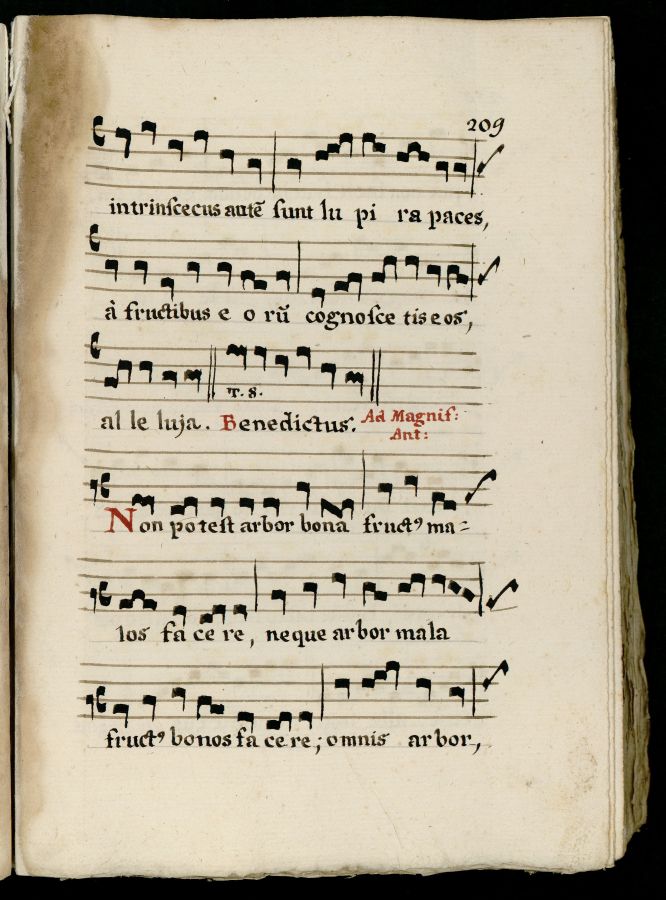 209
intrinſcecus autē ſunt lu pi ra paces,
à fructibus e o rū cognoſce tis eos,
T. 8.
al le luja. Benedictus. Ad Magnif:
Ant:
Non poteſt arbor bona fructꝰ ma=
los fa ce re, neque arbor mala
fructꝰ bonos fa ce re; omnis arbor,